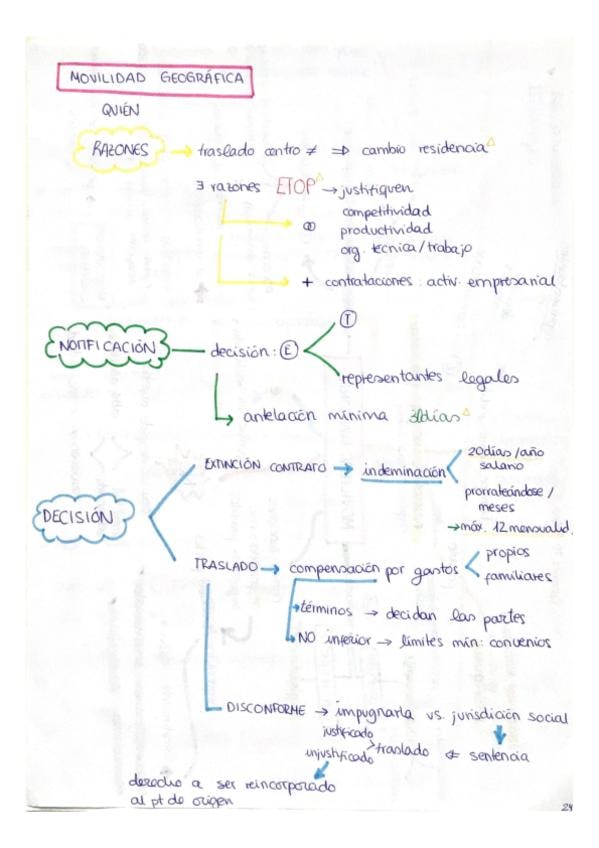 MOVILIDAD GEOGRÁFICA
QUIÉN
RAZONES → traslado centro ≠ ⇒ cambio residencia
∃ razones ETOP → justifiquen
competitividad
∞ productividad
org. técnica / trabajo
+ contrataciones : activ. empresarial
NOTIFICACIÓN decisión : E
T
representantes legales
antelación mínima 30días
DECISIÓN
EXTINCIÓN CONTRATO → indeminación
20días /año
salario
prorrateándose /
meses
→ máx. 12 mensualid.
TRASLADO → compensación por gastos
propios
familiares
términos → decidan las partes
NO inferior → límites mín: convenios
DISCONFORME → impugnarla vs. jurisdición social
justificado
injustificado > traslado ⇐ sentencia
derecho a ser reincorporado
al pt de origen
24